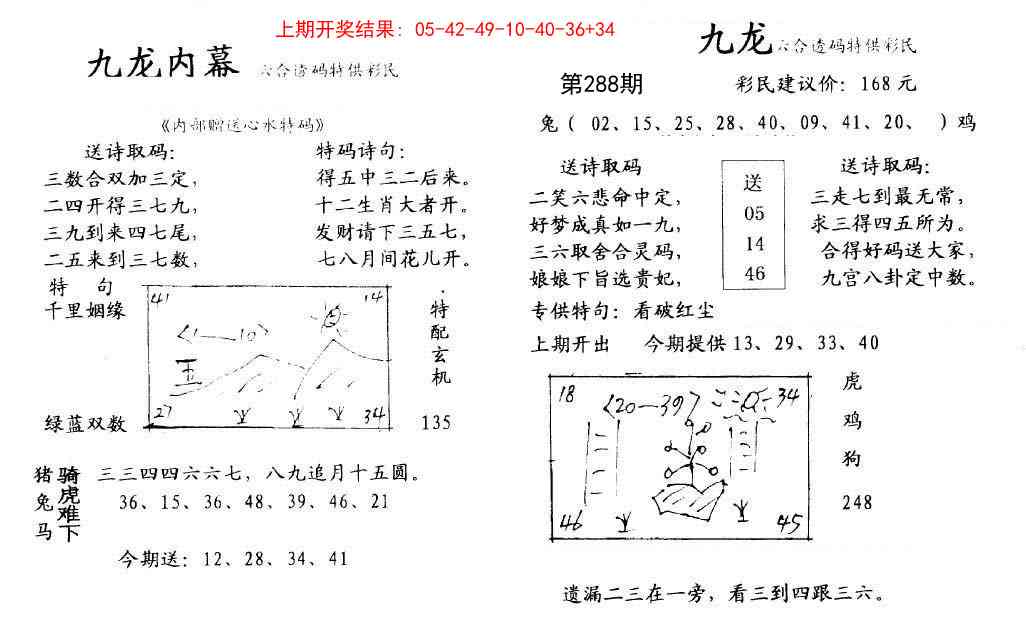 上期开奖结果：05-42-49-10-40-36+34
九龙内幕 六合透码特供彩民
《内部赠送心水特码》
送诗取码：
三数合双加三定，
二四开得三七九，
三九到来四七尾，
二五来到三七数，
特码诗句：
得五中三二后来。
十二生肖大者开。
发财请下三五七，
七八月间花儿开。
特 句
千里姻缘
绿蓝双数
41
14
1—10
玉
27
34
特配玄机
135
猪兔马
骑虎难下
三三四四六六七，八九追月十五圆。
36、15、36、48、39、46、21
今期送：12、28、34、41
九龙六合透码特供彩民
第288期
彩民建议价：168元
兔（ 02、15、25、28、40、09、41、20、 ）鸡
送诗取码
二笑六悲命中定，
好梦成真如一九，
三六取舍合灵码，
娘娘下旨选贵妃，
送
05
14
46
送诗取码：
三走七到最无常，
求三得四五所为。
合得好码送大家，
九宫八卦定中数。
专供特句：看破红尘
上期开出 今期提供13、29、33、40
18
20—39
34
46
45
虎
鸡
狗
248
遗漏二三在一旁，看三到四跟三六。